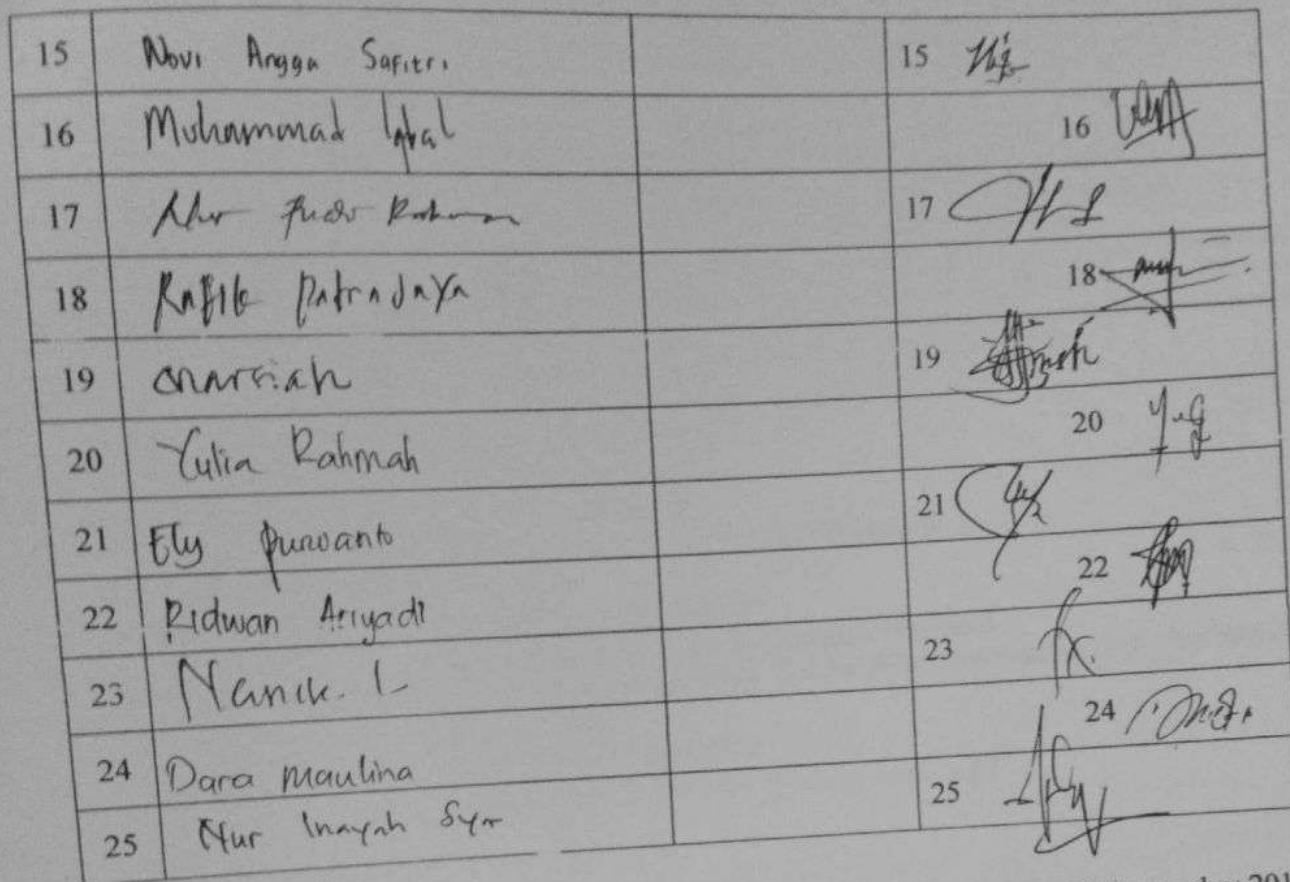 15 Novi Angga Safitri 15
16 Muhammad Iqbal 16
17 17
18 Rafik Patradaya 18
19 19
20 Yulia Rahmah 20
21 Ely Purwanto 21
22 Ridwan Ariyadi 22
23 Nanik. L 23
24 Dara maulina 24
25 Nur Inayah Syr 25